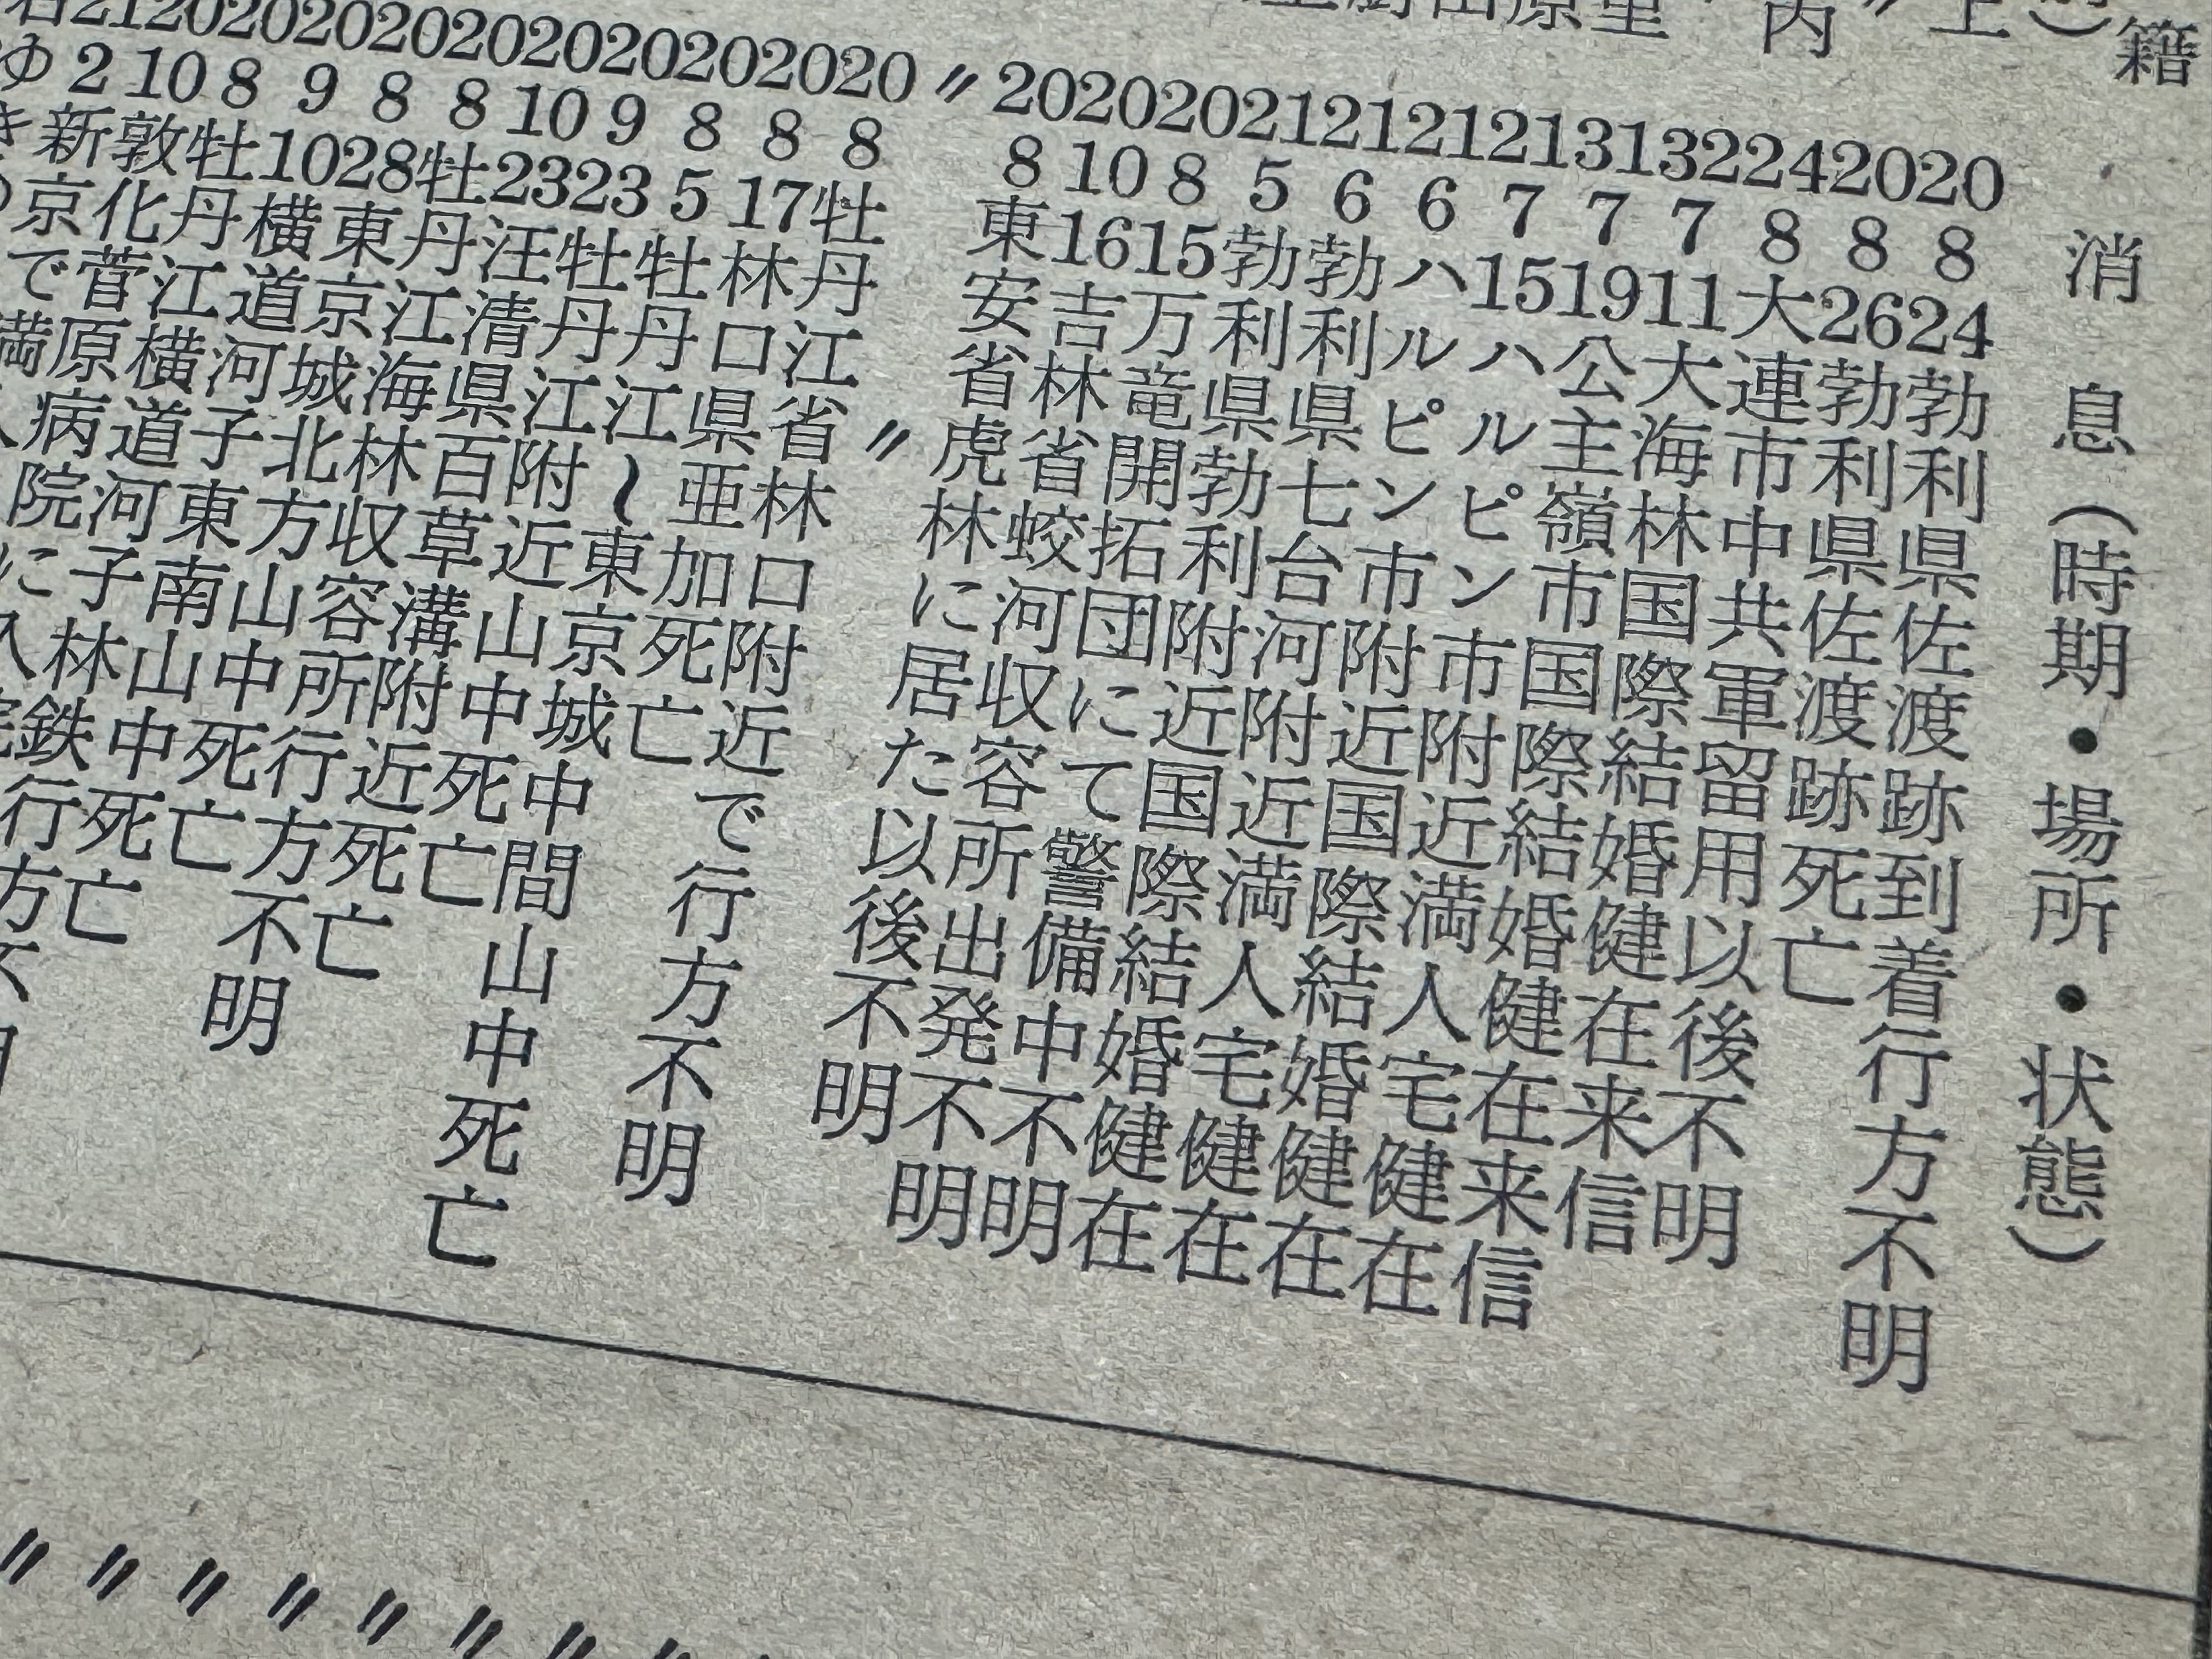 籍
消息（時期・場所・状態）
20 8 24 勃利県佐渡跡到着行方不明
20 8 26 勃利県佐渡跡死亡
24 8 大連市中共軍留用以後不明
32 7 11 大海林国際結婚健在来信
31 7 19 公主嶺市国際結婚健在来信
21 7 15 ハルピン市附近満人宅健在
21 6 ハルピン市附近国際結婚健在
21 6 勃利県七台河附近満人宅健在
21 5 勃利県勃利附近国際結婚健在
20 8 15 万竜開拓団にて警備中不明
20 10 16 吉林省蛟河収容所出発不明
20 8 東安省虎林に居た以後不明
〃 〃
20 8 牡丹江省林口附近で行方不明
20 8 17 林口県亜加死亡
20 8 5 牡丹江〜東京城中間山中死亡
20 9 23 牡丹江附近山中死亡
20 10 23 汪清県百草溝附近死亡
20 8 牡丹江海林収容所行方不明
20 8 28 東京城北方山中死亡
20 9 10 横道河子東南山中死亡
20 8 牡丹江横道河子林鉄行方
20 10 敦化菅原病院に入
21 2 新京で満
〃 〃 〃 〃 〃 〃 〃 〃